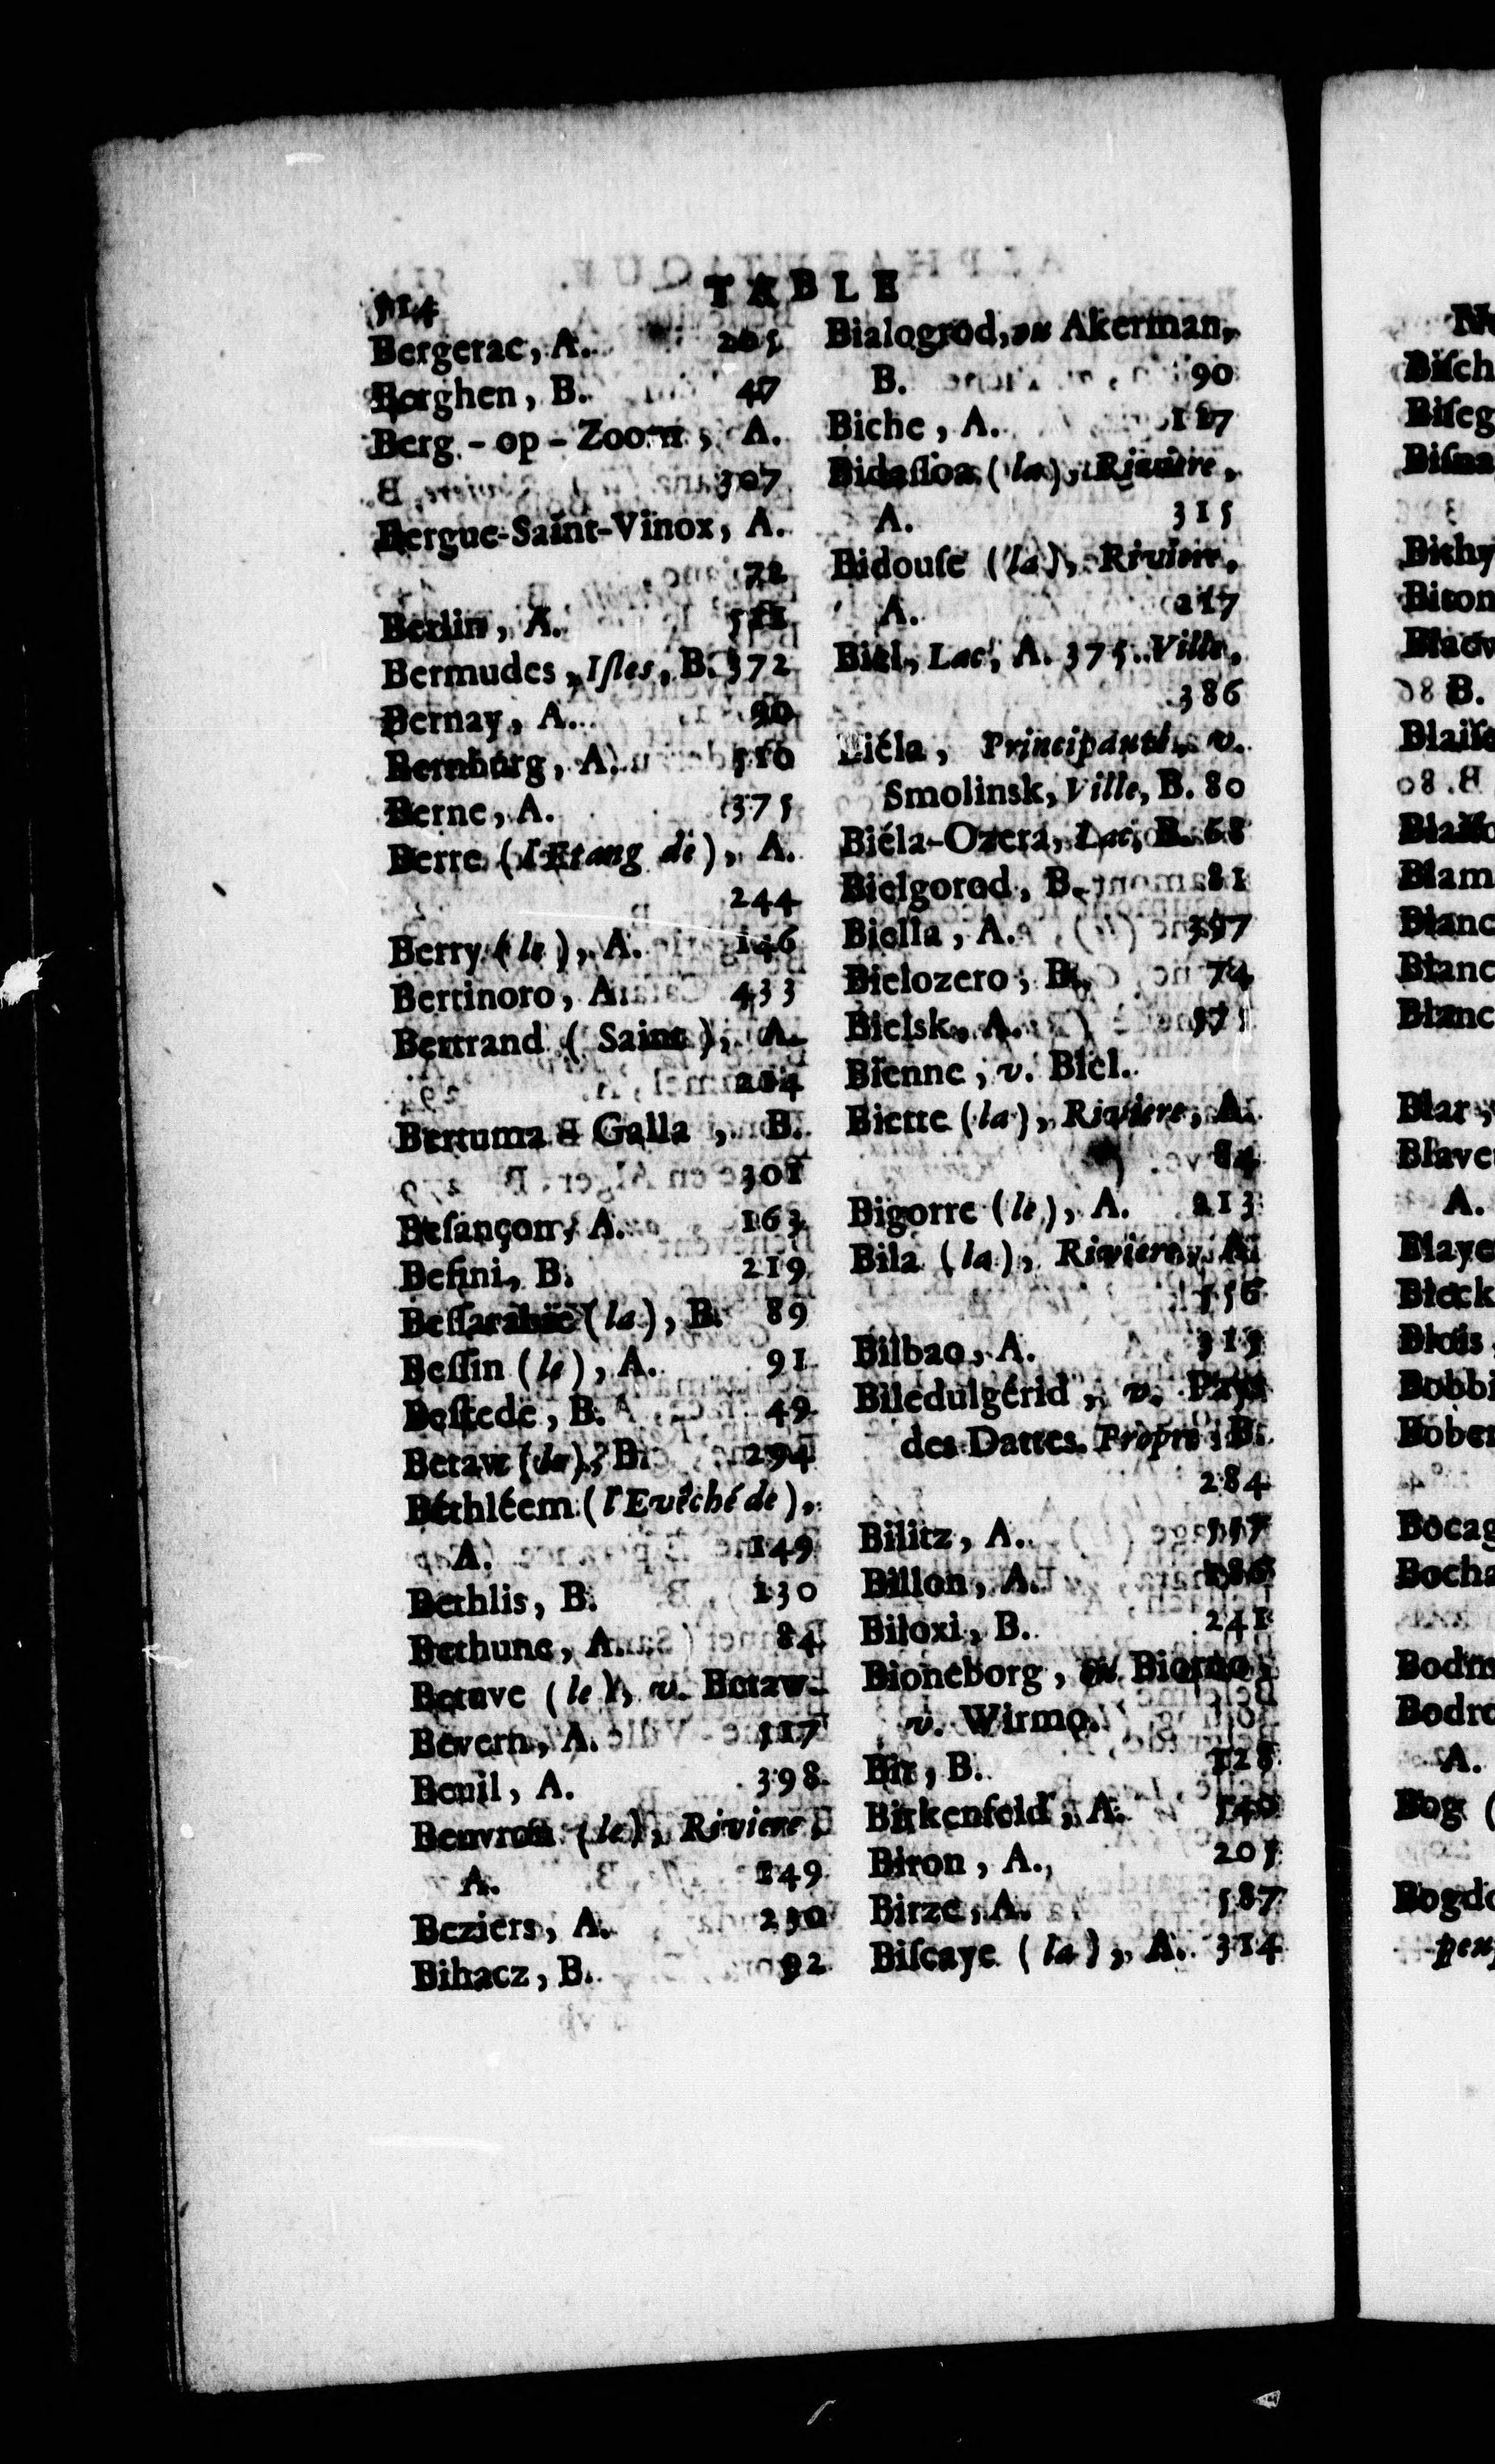 514
TABLE
Bergerac, A. 205
Berghen, B. 47
Berg-op-Zoom, A.
307
Bergue-Saint-Vinox, A.
72
Berlin, A.
Bermudes, Iſles, B. 372
Bernay, A. 90
Bernbourg, A. 510
Berne, A. 375
Berre (l'Etang de), A.
244
Berry (le), A. 146
Bertinoro, A. 433
Bertrand (Saint), A.
214
Bertuma Galla, B.
301
Beſançon, A. 163
Beſini, B. 219
Beſſarabie (la), B. 89
Beſſin (le), A. 91
Beſtede, B. 49
Betaw (la), B. 294
Béthléem (l'Evêché de),
A. 149
Bethlis, B. 130
Bethune, A. 84
Betuve (le), v. Betaw.
Bevern, A. 517
Beuil, A. 398
Beuvron (le), Riviere,
A. 149
Beziers, A. 230
Bihacz, B. 92
Bialogrod, ou Akerman,
B. 90
Biche, A. 127
Bidaſſoa (la), Riviere,
A. 315
Bidouſe (la), Riviere,
A. 217
Biel, Lac, A. 375. Ville,
386
Biéla, Principauté, v.
Smolinsk, Ville, B. 80
Biéla-Ozera, Lac, B. 68
Bielgorod, B. 81
Biella, A. 397
Bielozero, B. 74
Bielsk, A.
Bienne, v. Biel.
Biette (la), Riviere, A.
84
Bigorre (le), A. 213
Bila (la), Riviere, A.
556
Bilbao, A. 315
Biledulgérid, v. Pays
des Dattes. Propre, B.
284
Bilitz, A. 557
Billon, A. 186
Biloxi, B. 241
Bioneborg, ou Biorno,
v. Wirmo.
Bir, B. 128
Birkenfeld, A. 540
Biron, A. 205
Birze, A. 587
Biſcaye (la), A. 314
Biſch
Biſeg
Biſna
Bithy
Biton
B.
Blaiſe
Blam
Blanc
Blanc
Blanc
Blar
Blave
A.
Blaye
Bleck
Blois,
Bobbi
Bober
Bocag
Bocha
Bodm
Bodro
A.
Bog (
Bogdo
peu